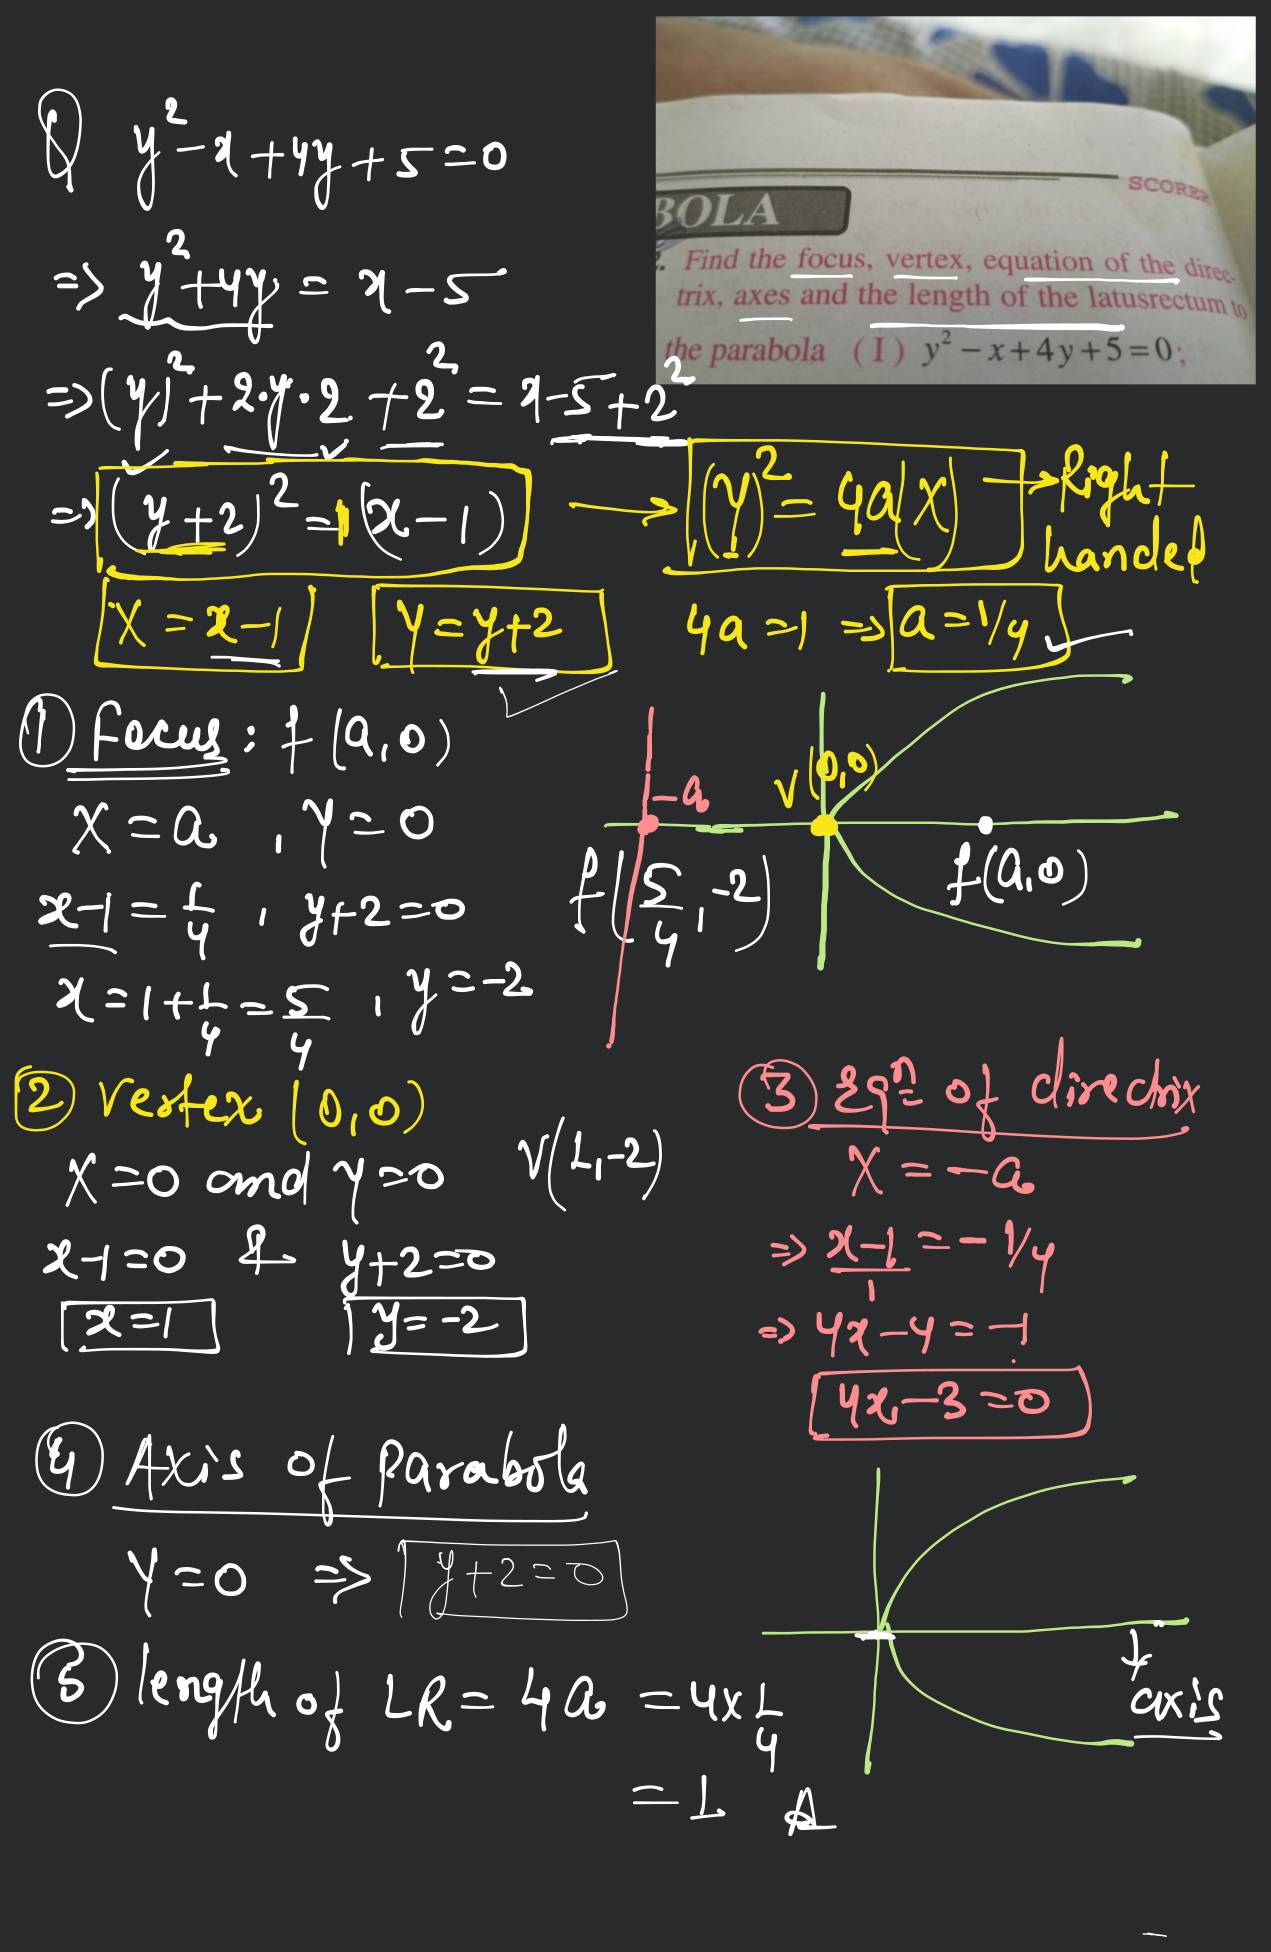 SCORER
BOLA
. Find the focus, vertex, equation of the direc-
trix, axes and the length of the latusrectum to
the parabola (I) y² – x + 4y + 5 = 0;
Q y² – x + 4y + 5 = 0
⇒ y² + 4y = x – 5
⇒ (y)² + 2·y·2 + 2² = x – 5 + 2²
⇒ (y + 2)² = 1(x – 1) → (Y)² = 4a(X) → Right handed
X = x – 1 Y = y + 2 4a = 1 ⇒ a = 1/4
① Focus : f(a, 0)
X = a , Y = 0
x – 1 = 1/4 , y + 2 = 0
x = 1 + 1/4 = 5/4 , y = –2
f(5/4, –2)
–a
V(0,0)
f(a,0)
② Vertex (0,0)
X = 0 and Y = 0 V(1, –2)
x – 1 = 0 & y + 2 = 0
x = 1 y = –2
③ Eqn of directrix
X = –a
⇒ x – 1 / 1 = – 1/4
⇒ 4x – 4 = –1
4x – 3 = 0
④ Axis of parabola
Y = 0 ⇒ y + 2 = 0
axis
⑤ length of LR = 4a = 4 x 1/4
= 1 A